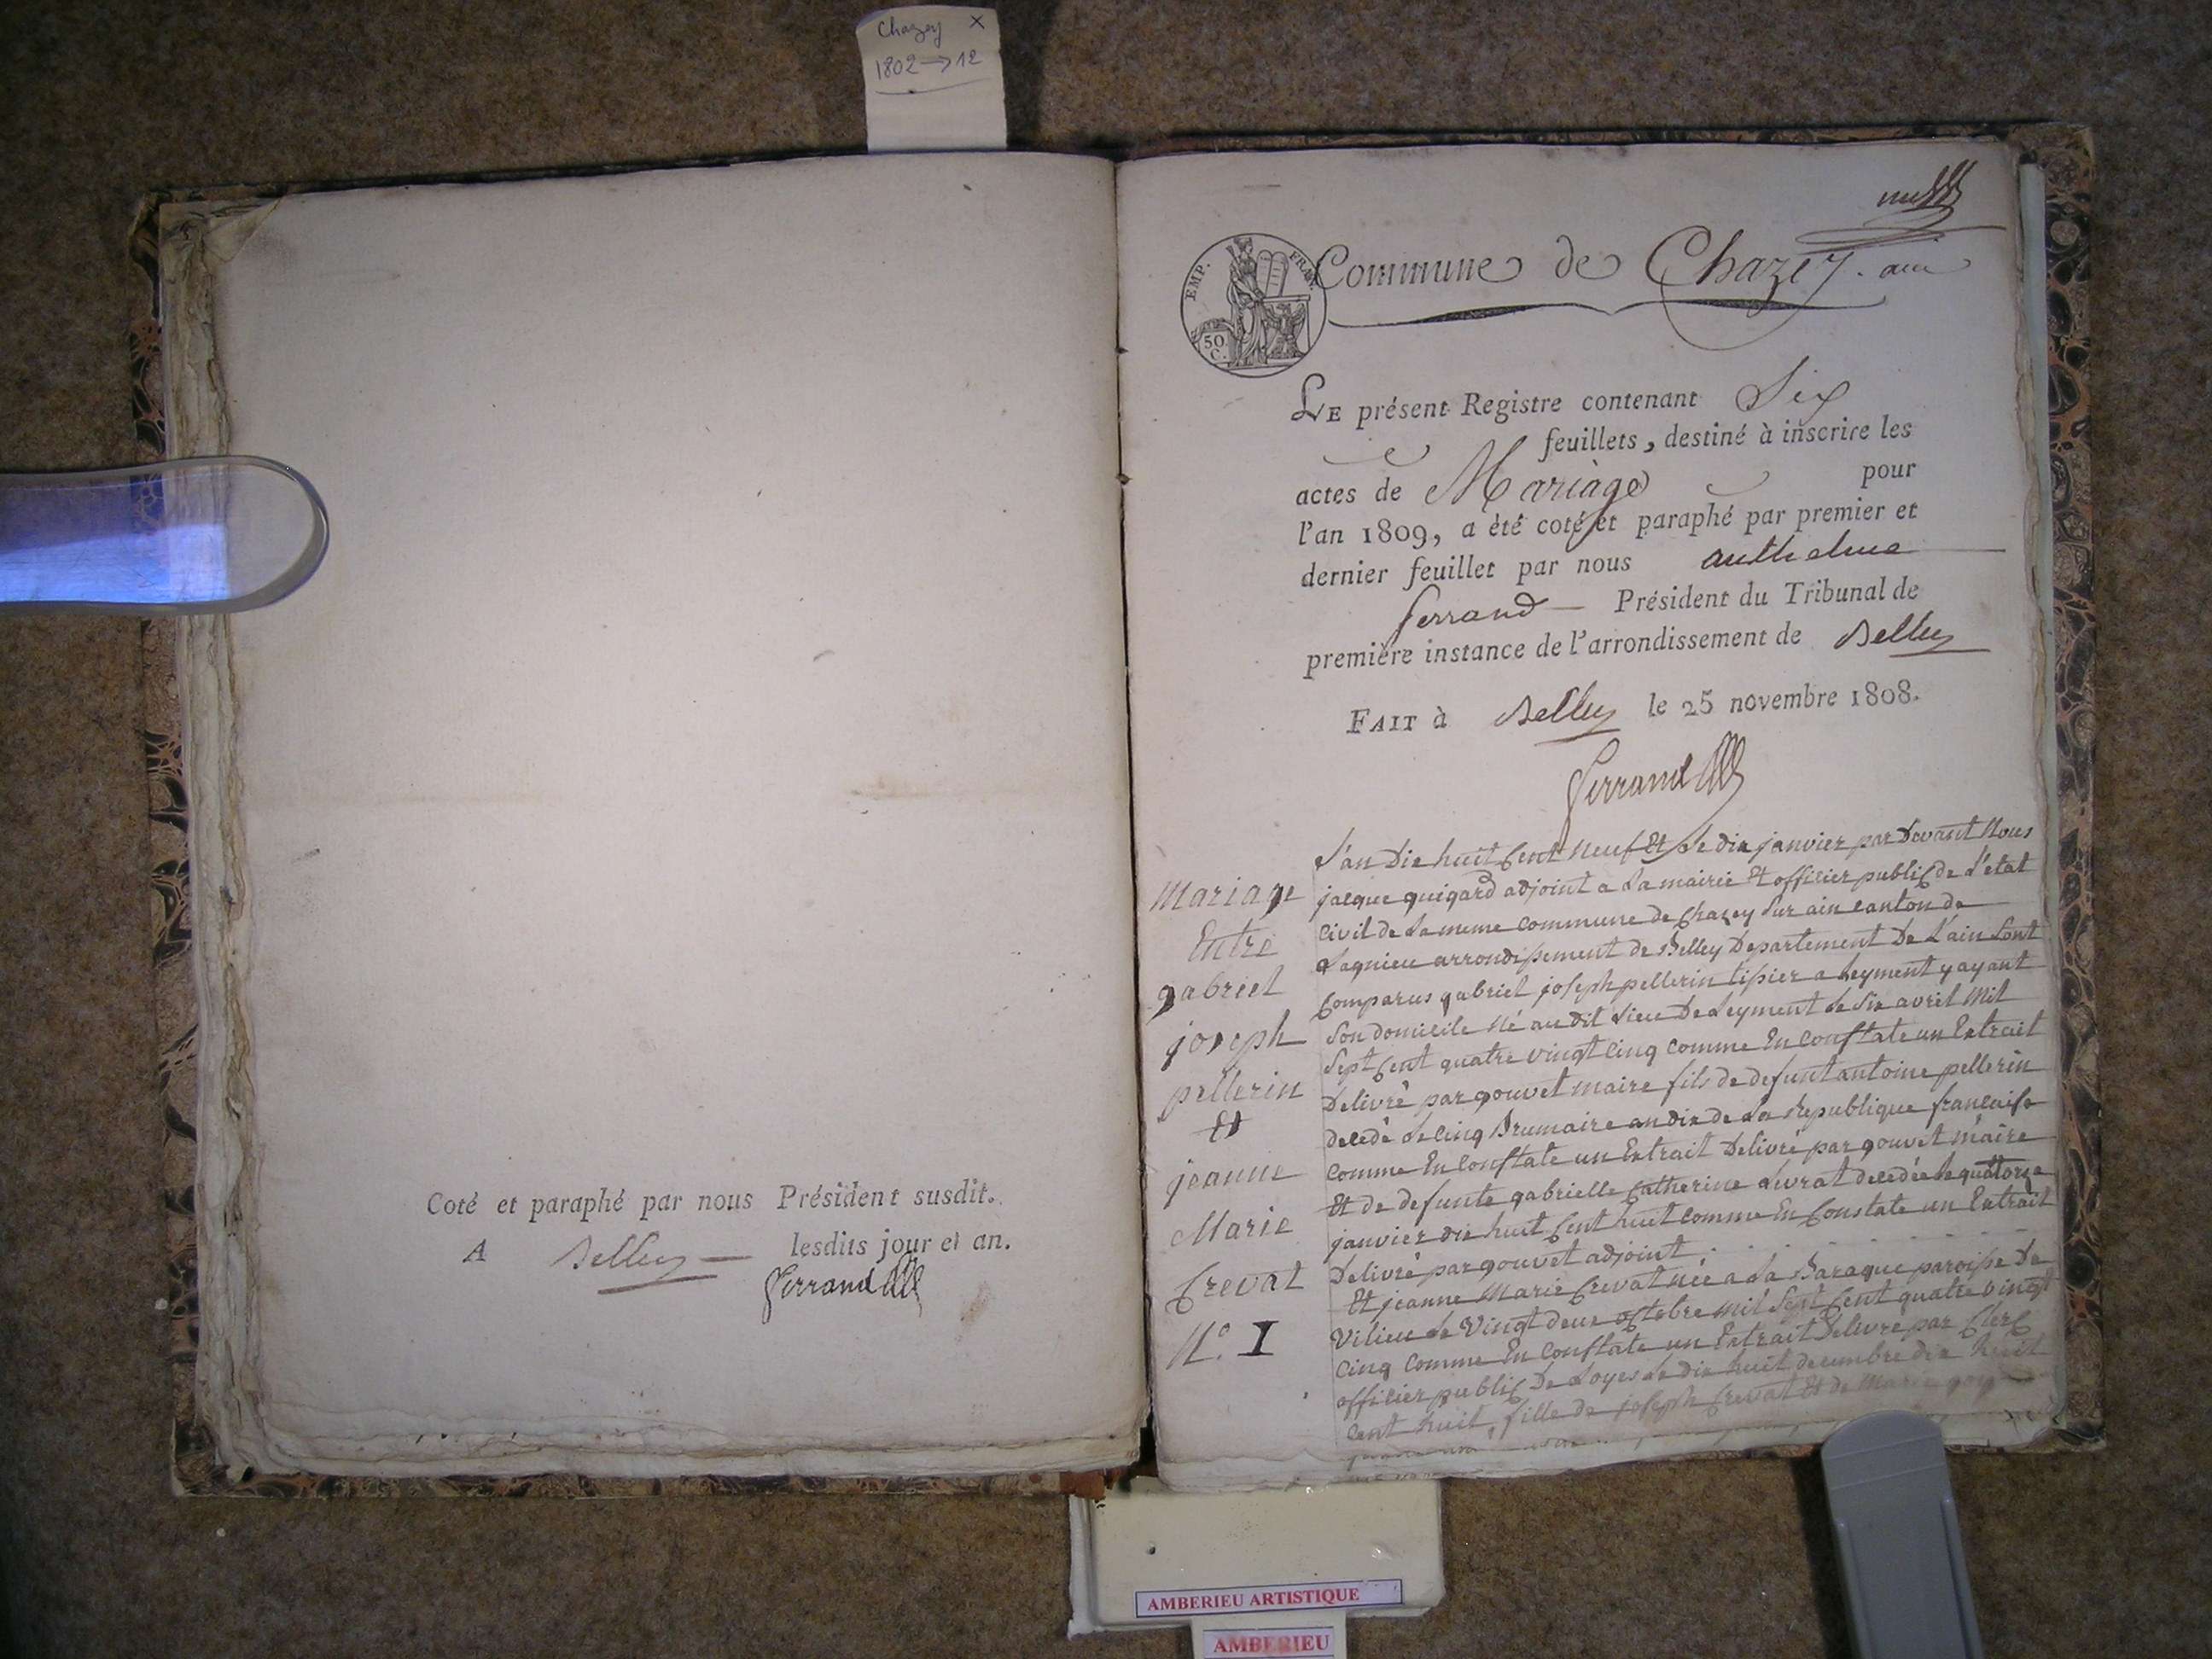 Chazey X
1802 → 12
Coté et paraphé par nous Président susdit.
A Belley lesdits jour et an.
Ferrand
EMP. FRAN.
50
C.
Commune de Chazey. ain
LE présent Registre contenant Six
feuillets, destiné à inscrire les
actes de Mariage pour
l'an 1809, a été coté et paraphé par premier et
dernier feuillet par nous anthelme
ferrand Président du Tribunal de
première instance de l'arrondissement de Belley
FAIT à Belley le 25 novembre 1808.
Ferrand
Mariage
Entre
gabriel
joseph
pellerin
Et
jeanne
Marie
Crevat
N.° 1
L'an Dix huit Cent neuf Et Le dix janvier par Devant Nous
jacque quigard adjoint a La mairie Et officier public de L'etat
civil de La meme commune de Chazey Sur ain canton de
Lagnieu arrondissement de Belley Departement De L'ain Sont
Comparus gabriel joseph pellerin tissier a Leyment y ayant
Son domicile Né au dit Lieu De Leyment Le Six avril Mil
Sept Cent quatre vingt Cinq comme En Constate un Extrait
Delivré par gouvet maire fils de defunt antoine pellerin
decedé Le cinq Brumaire an dix de La Republique francaise
comme En Constate un Extrait Delivré par gouvet maire
Et de defunte gabrielle Catherine Livrat decedée Le quatorze
janvier dix huit Cent huit comme En Constate un Extrait
Delivré par gouvet adjoint
Et jeanne Marie Crevat née a La Baraque paroisse De
Vilieu Le Vingt deux octobre Mil Sept Cent quatre vingt
Cinq Comme En Constate un Extrait Delivré par Clerc
officier public De Loyes Le dix huit decembre dix huit
Cent huit, fille de joseph Crevat Et de Marie
AMBERIEU ARTISTIQUE
AMBERIEU